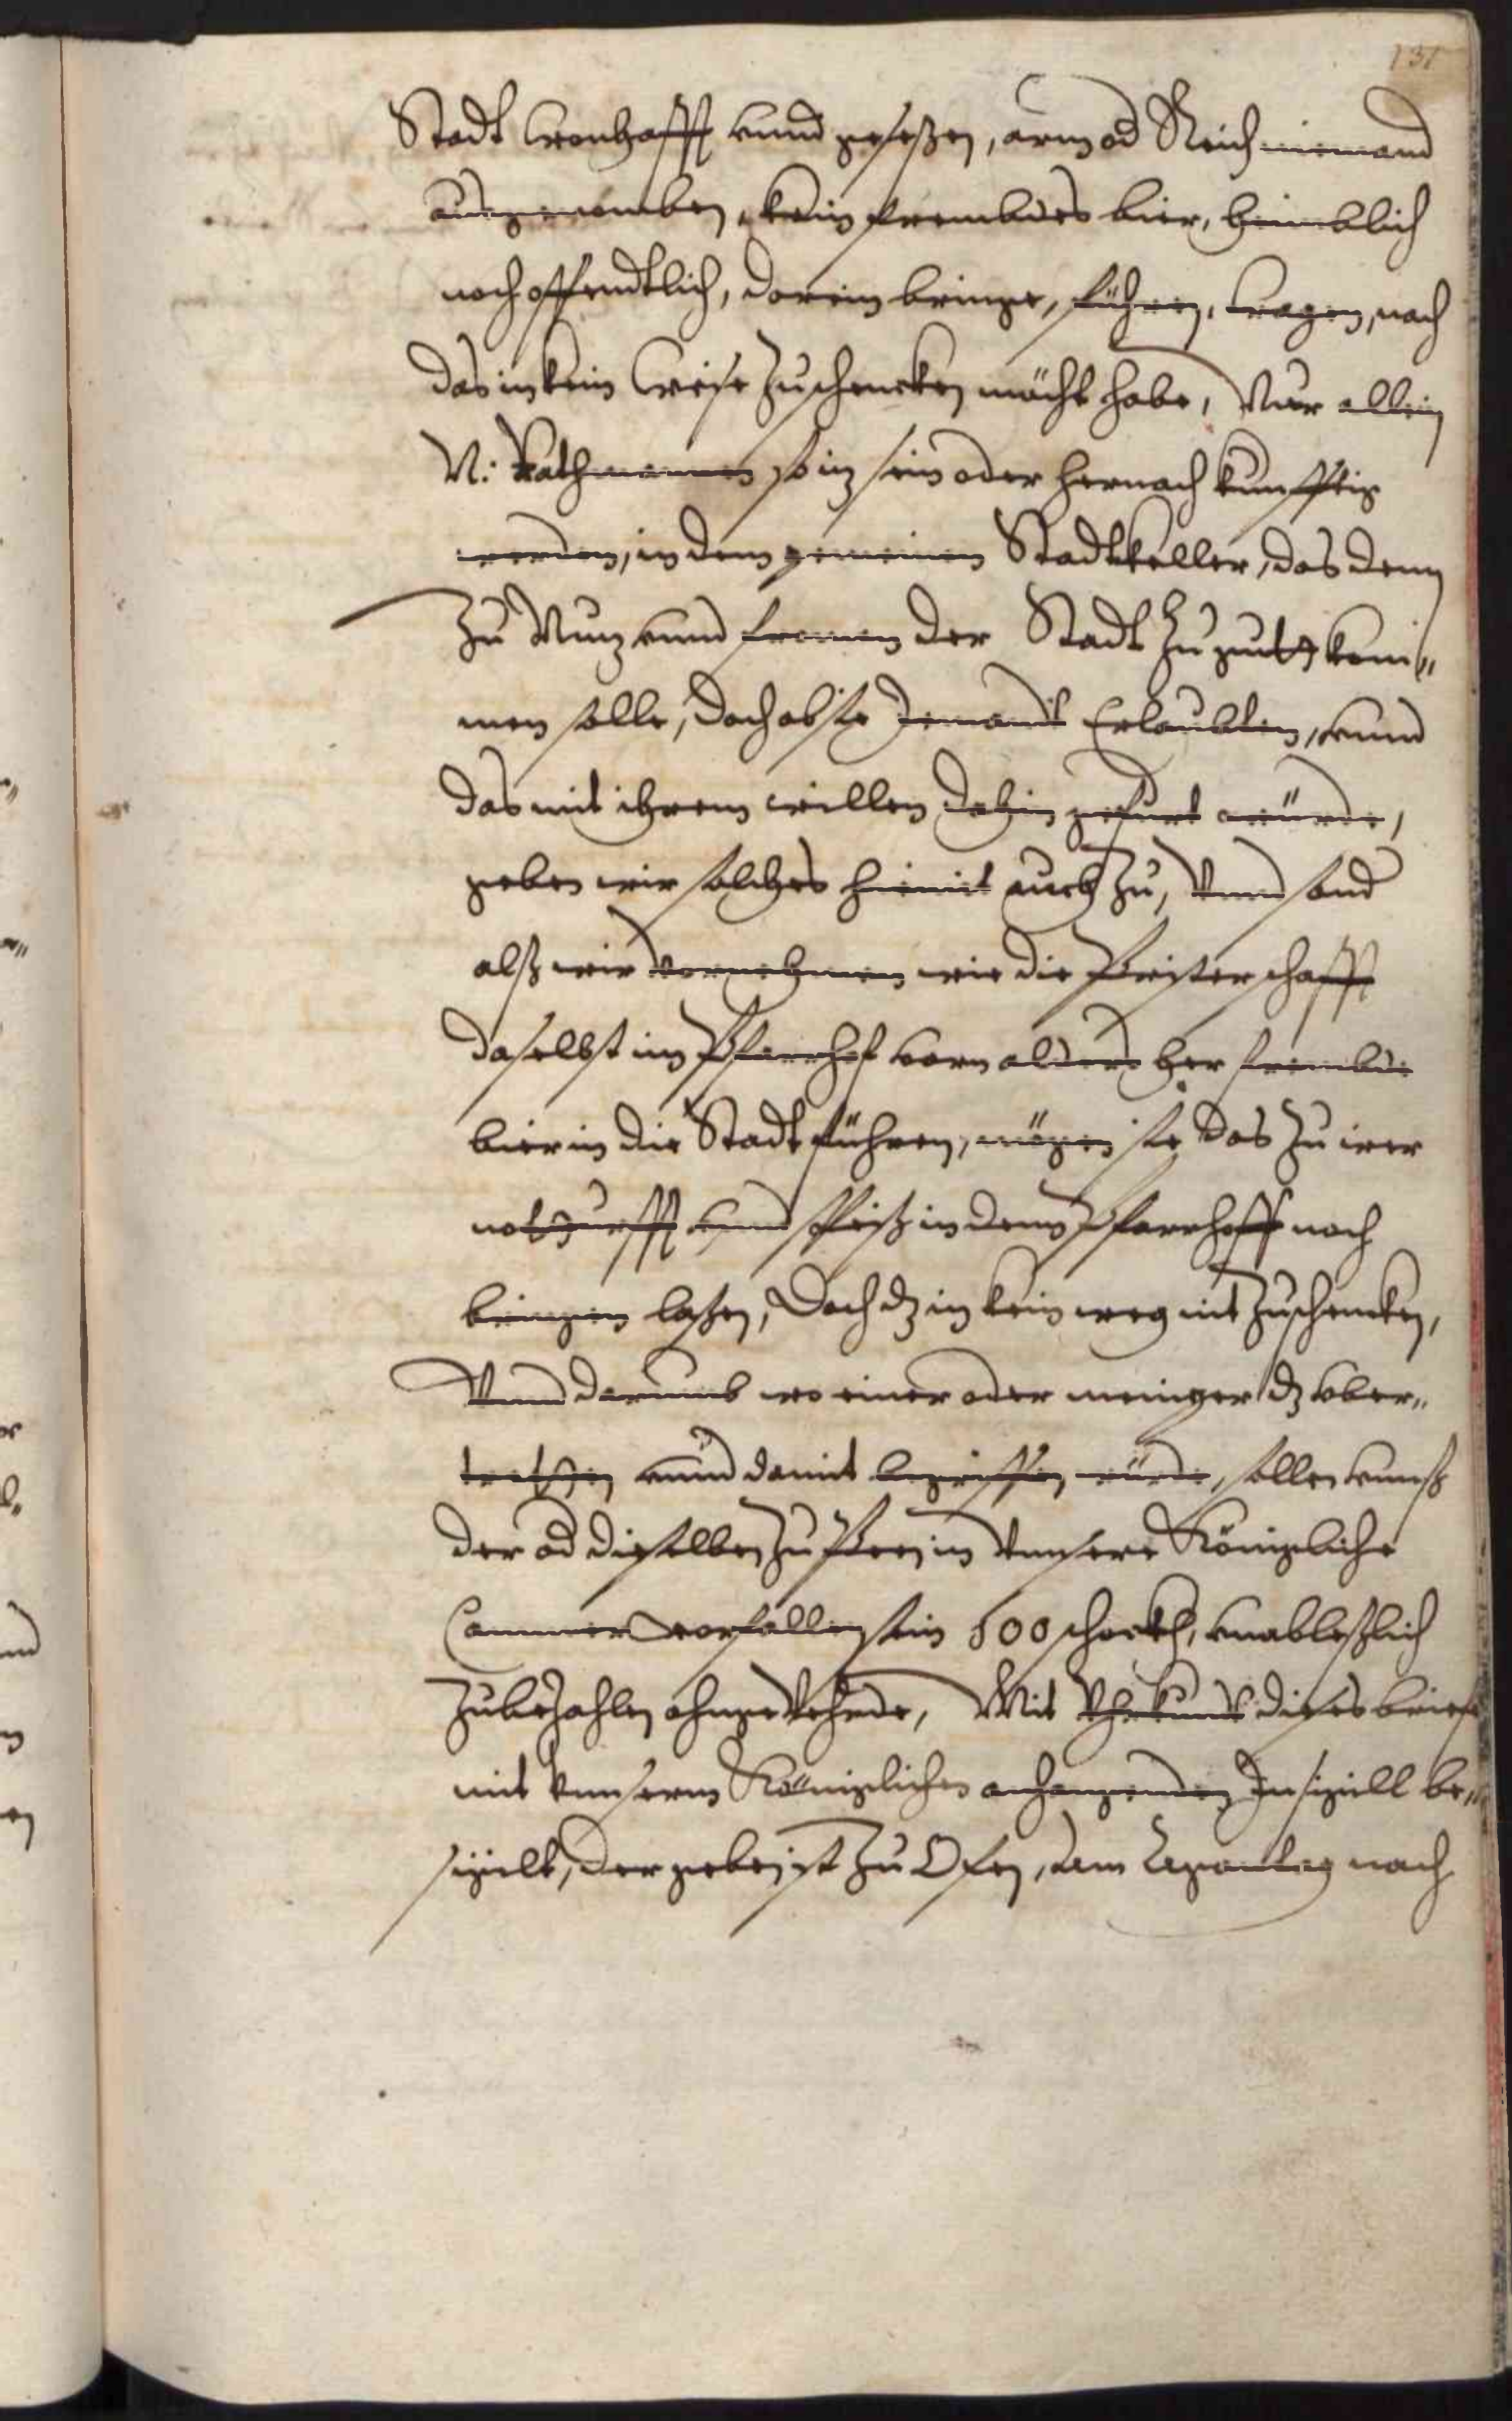 131
Stadt wonhafft vnnd geseßen, arm od Reich niemand
außgenomben, kein frembdes bier, heimblich
noch offendtlich, darein bringe, führen, tragen, noch
das in kein weise zuschencken mächt habe, Nur allein
N: Rathmannen so iz sein oder hernach kunfftig
werden, in dem gemeinen Stadtkeller, das denn
zu Nuz vnnd fromen der Stadt zu gutt kom„
men solle, doch ob sie Jemandt Erlaubten, vnnd
das mit ihrem willen dahin gefurt würde,
geben wir solches hiemit auch zu, Vnnd sond
alß wir vornehmen wie die Pristerschafft
daselbst im Pfarrhof vorn alders her frembde
bier in die Stadt führen, mögen sie das zu irer
notturfft vnnd Speiß in denn Pfarrhoff noch
bringen laßen, Doch dz in kein weg nit zuschencken,
Vnnd darumb wo einer oder meniger dz vber„
tretten vnnd damit begriffen würde, sollen vnnß
der od dieselben zu Peen in Vnnsere Königliche
Cammer vorfallen sein 500 schockh, vnableßlich
zubezahlen ohngevehrde, Mit Vhrkundt dises briefs
mit vnnserm Königlichen anhangenden Insigill be„
sigelt, der geben ist zu Ofen, am nach